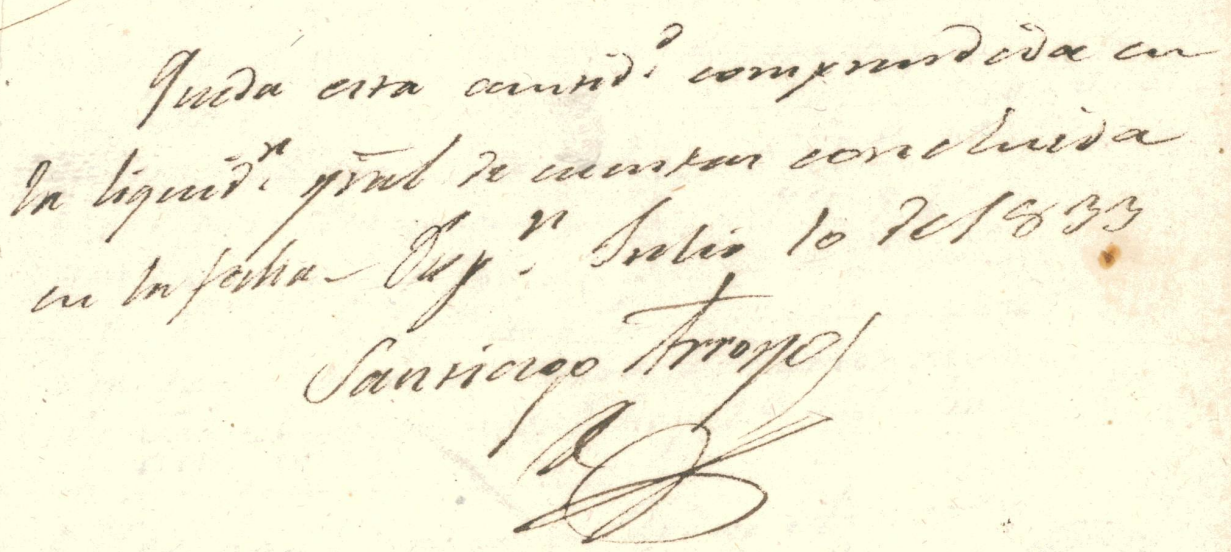 Queda esta cantid.d comprendida en
la liquid.n gral de cuentas concluida
en la fecha Julio 10 de 1833
Santiago Arroyo